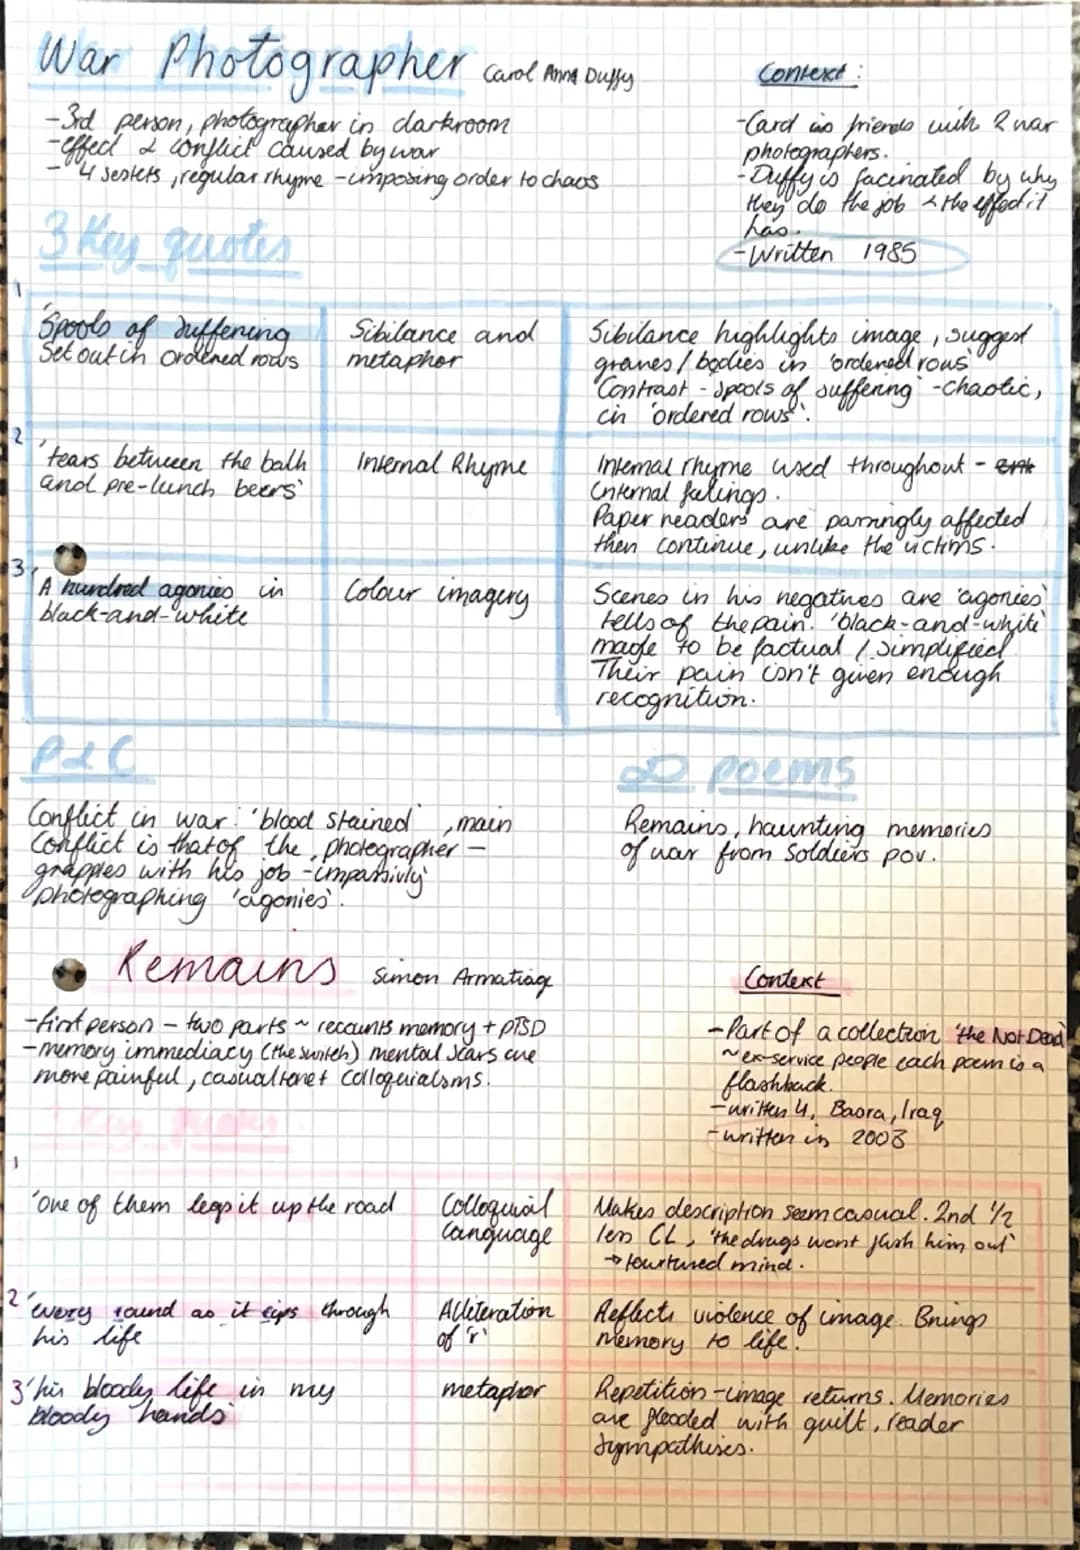 War Photographer Carol Anna Duffy
-3rd person, photographer in darkroom
-effect & conflict caused by war
- 4 sestets, regular rhyme -imposing order to chaos
Context:
-Carol is friends with 2 war
photographers.
-Duffy is facinated by why
they do the job & the effect it
has.
-Written 1985
3 Key quotes
1
'Spools of suffering
Set out in ordered rows
Sibilance and
metaphor
Sibilance highlights image, suggest
graves / bodies in 'ordered rows'
Contrast - 'spools of suffering' -chaotic,
in 'ordered rows'.
2
'tears between the bath
and pre-lunch beers'
Internal Rhyme
Internal rhyme used throughout -
internal feelings.
Paper readers are parringly affected
then continue, unlike the victims.
3
'A hundred agonies in
black-and-white
Colour imagery
Scenes in his negatives are 'agonies'
tells of the pain. 'black-and-white'
made to be factual / simplified
Their pain isn't given enough
recognition.
P & C
Conflict in war: 'blood stained', main
conflict is that of the photographer -
grapples with his job -impassivly
photographing 'agonies'.
poems
Remains, haunting memories
of war from Soldiers pov.
Remains Simon Armatiage
-first person - two parts ~ recounts memory + PTSD
-memory immediacy (the switch) mental scars are
more painful, casual tone + colloquialsms.
Context
-Part of a collection 'the Not Dead'
~ex-service people each poem is a
flashback.
-written 4, Basra, Iraq
-written in 2008
Key quotes
1
'one of them legs it up the road
Colloquial
language
Makes description seem casual. 2nd 1/2
less CL, 'the drugs wont flush him out'
→ tourtured mind.
2 'every round as it rips through
his life
Alliteration
of 'r'
Reflects violence of image. Brings
memory to life.
3 'his bloody life in my
bloody hands'
metaphor
Repetition -image returns. Memories
are flooded with guilt, reader
sympathises.